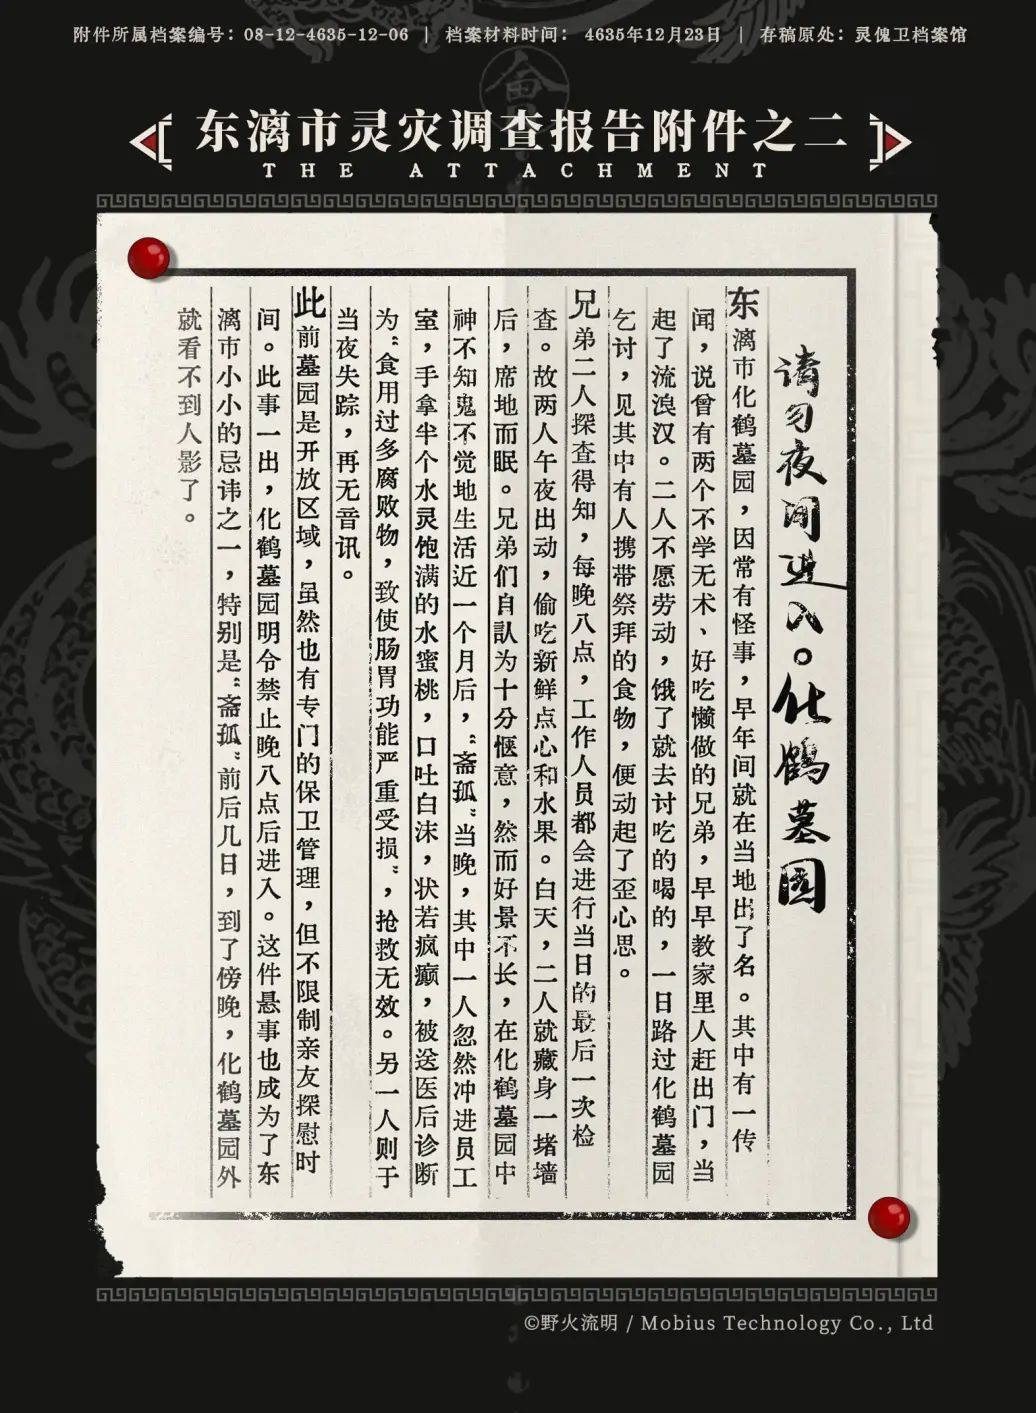 附件所属档案编号：08-12-4635-12-06 | 档案材料时间： 4635年12月23日 | 存稿原处：灵傀卫档案馆
东漓市灵灾调查报告附件之二
THE ATTACHMENT
请勿夜间进入。化鹤墓园
东漓市化鹤墓园，因常有怪事，早年间就在当地出了名。其中有一传
闻，说曾有两个不学无术、好吃懒做的兄弟，早早教家里人赶出门，当
起了流浪汉。二人不愿劳动，饿了就去讨吃的喝的，一日路过化鹤墓园
乞讨，见其中有人携带祭拜的食物，便动起了歪心思。
兄弟二人探查得知，每晚八点，工作人员都会进行当日的最后一次检
查。故两人午夜出动，偷吃新鲜点心和水果。白天，二人就藏身一堵墙
后，席地而眠。兄弟们自认为十分惬意，然而好景不长，在化鹤墓园中
神不知鬼不觉地生活近一个月后，“斋孤”当晚，其中一人忽然冲进员工
室，手拿半个水灵饱满的水蜜桃，口吐白沫，状若疯癫，被送医后诊断
为“食用过多腐败物，致使肠胃功能严重受损”，抢救无效。另一人则于
当夜失踪，再无音讯。
此前墓园是开放区域，虽然也有专门的保卫管理，但不限制亲友探慰时
间。此事一出，化鹤墓园明令禁止晚八点后进入。这件悬事也成为了东
漓市小小的忌讳之一，特别是“斋孤”前后几日，到了傍晚，化鹤墓园外
就看不到人影了。
©野火流明 / Mobius Technology Co., Ltd